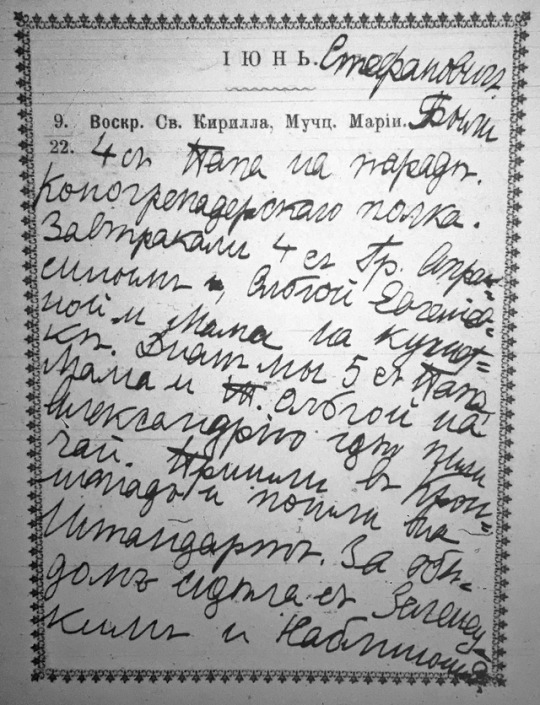 ІЮНЬ. Стефановичъ.
9. Воскр. Св. Кирилла, Мучц. Маріи. Были
22. 4 съ Папа на парадѣ.
Коногренадерскаго полка.
Завтракали 4 съ Гр. Апра-
синомъ и, Ольгой Евгеніе-
ной и Мама на кушет-
кѣ. Ѣхали мы 5 съ Папа
Мама и Т. Ольгой на
Александрію гдѣ пили
чай. Пришли въ Крон-
штадъ и пошли на
Штандартъ. За обѣ-
домъ сидѣла съ Зеленец-
кимъ и